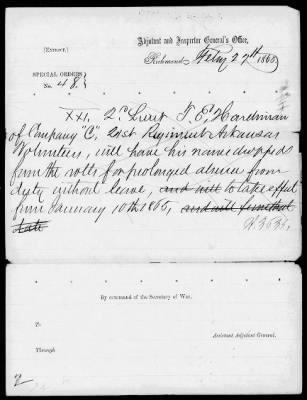 Adjutant and Inspector General's Office,
(Extract.)
Richmond, Feby 27th 1865.
SPECIAL ORDERS
No. 48.
XXI. 2d Lieut T. E. Hardiman
of Company "C," 21st Regiment Arkansas
Volunteers, will have his name dropped
from the rolls for prolonged absence from
duty without leave, and will to take effect
from January 10th 1865, and will from that
date
By command of the Secretary of War.
To
Assistant Adjutant General.
Through
2